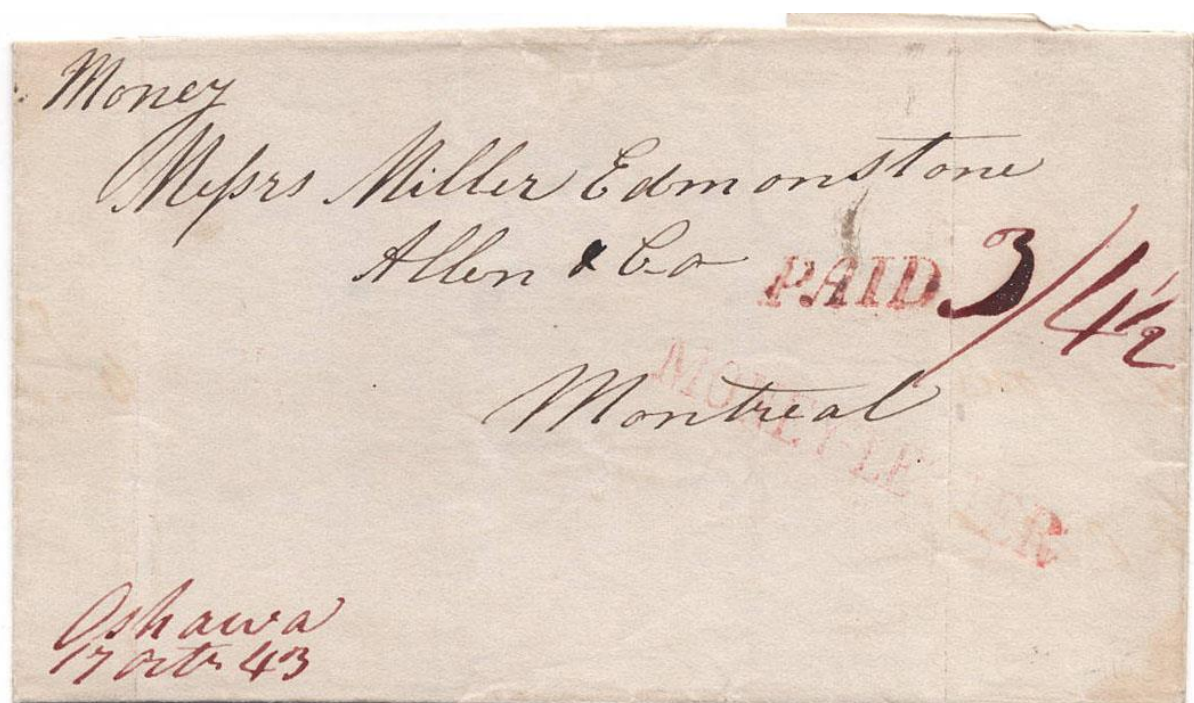 Money
Messrs Miller Edmonstone
Allen & Co
PAID 3/4½
Montreal
MONEY-LETTER
Oshawa
17 Octr 43